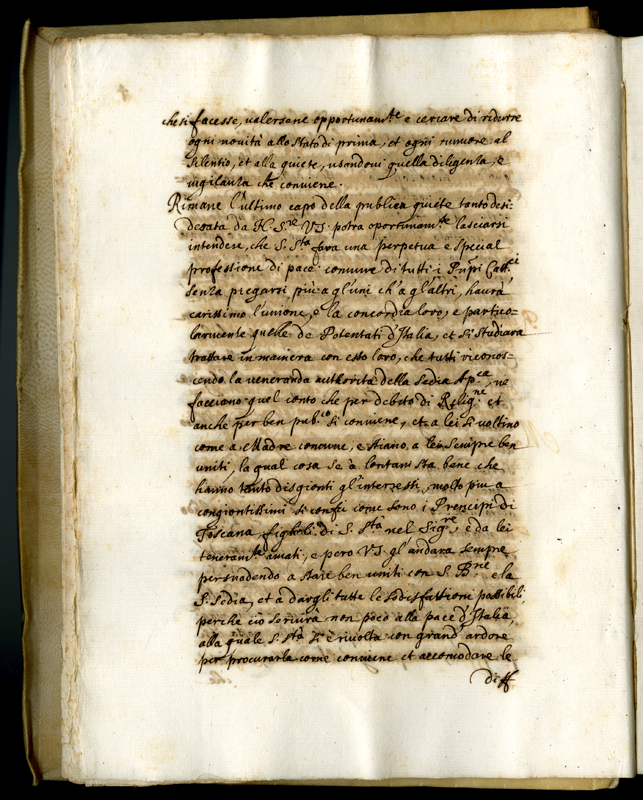 che si facesse, valersene opportunam.te e cercare di ridurre
ogni novità allo stato di prima, et ogni rumore al
silentio, et alla quiete, usandovi quella diligenza, e
vigilanza che conviene.
Rimane l'ultimo capo della publica quiete tanto desi-
derata da N. S.re VS. potra oportunam.te lasciarsi
intendere, che S. S.ta fara una perpetua e special
professione di pace comune di tutti i Prñpi Catt.ci
senza piegarsi più a gl'uni ch'a gl'altri, haurà
carissimo l'unione, e la concordia loro, e partico-
larmente quelle de Potentati d'Italia, et si studiara
trattare in maniera con esso loro, che tutti riconos-
cendo la veneranda authorità della Sedia Ap.ca, ne
facciano quel conto che per debito di Relig.ne et
anche per ben pub.co si conviene, et a lei si voltino
come a Madre comune, e stiano a lei sempre ben
uniti, la qual cosa se à lontani sta bene che
hanno tanto disgionti gl'interessi, molto piu a
congiontissimi si confà come sono i Prencipi di
Toscana figlioli di S. S.tà nel Sig.re, e da lei
teneram.te amati, e pero VS. gl'andara sempre
persuadendo a stare ben uniti con S. B.ne e la
S. Sedia, et a dargli tutte le sodisfattioni possibili,
perche ciò servirà non poco alla pace d'Italia,
alla quale S. S.tà si è rivolta con grand'ardore
per procurarla come conviene et accomodare le
diff